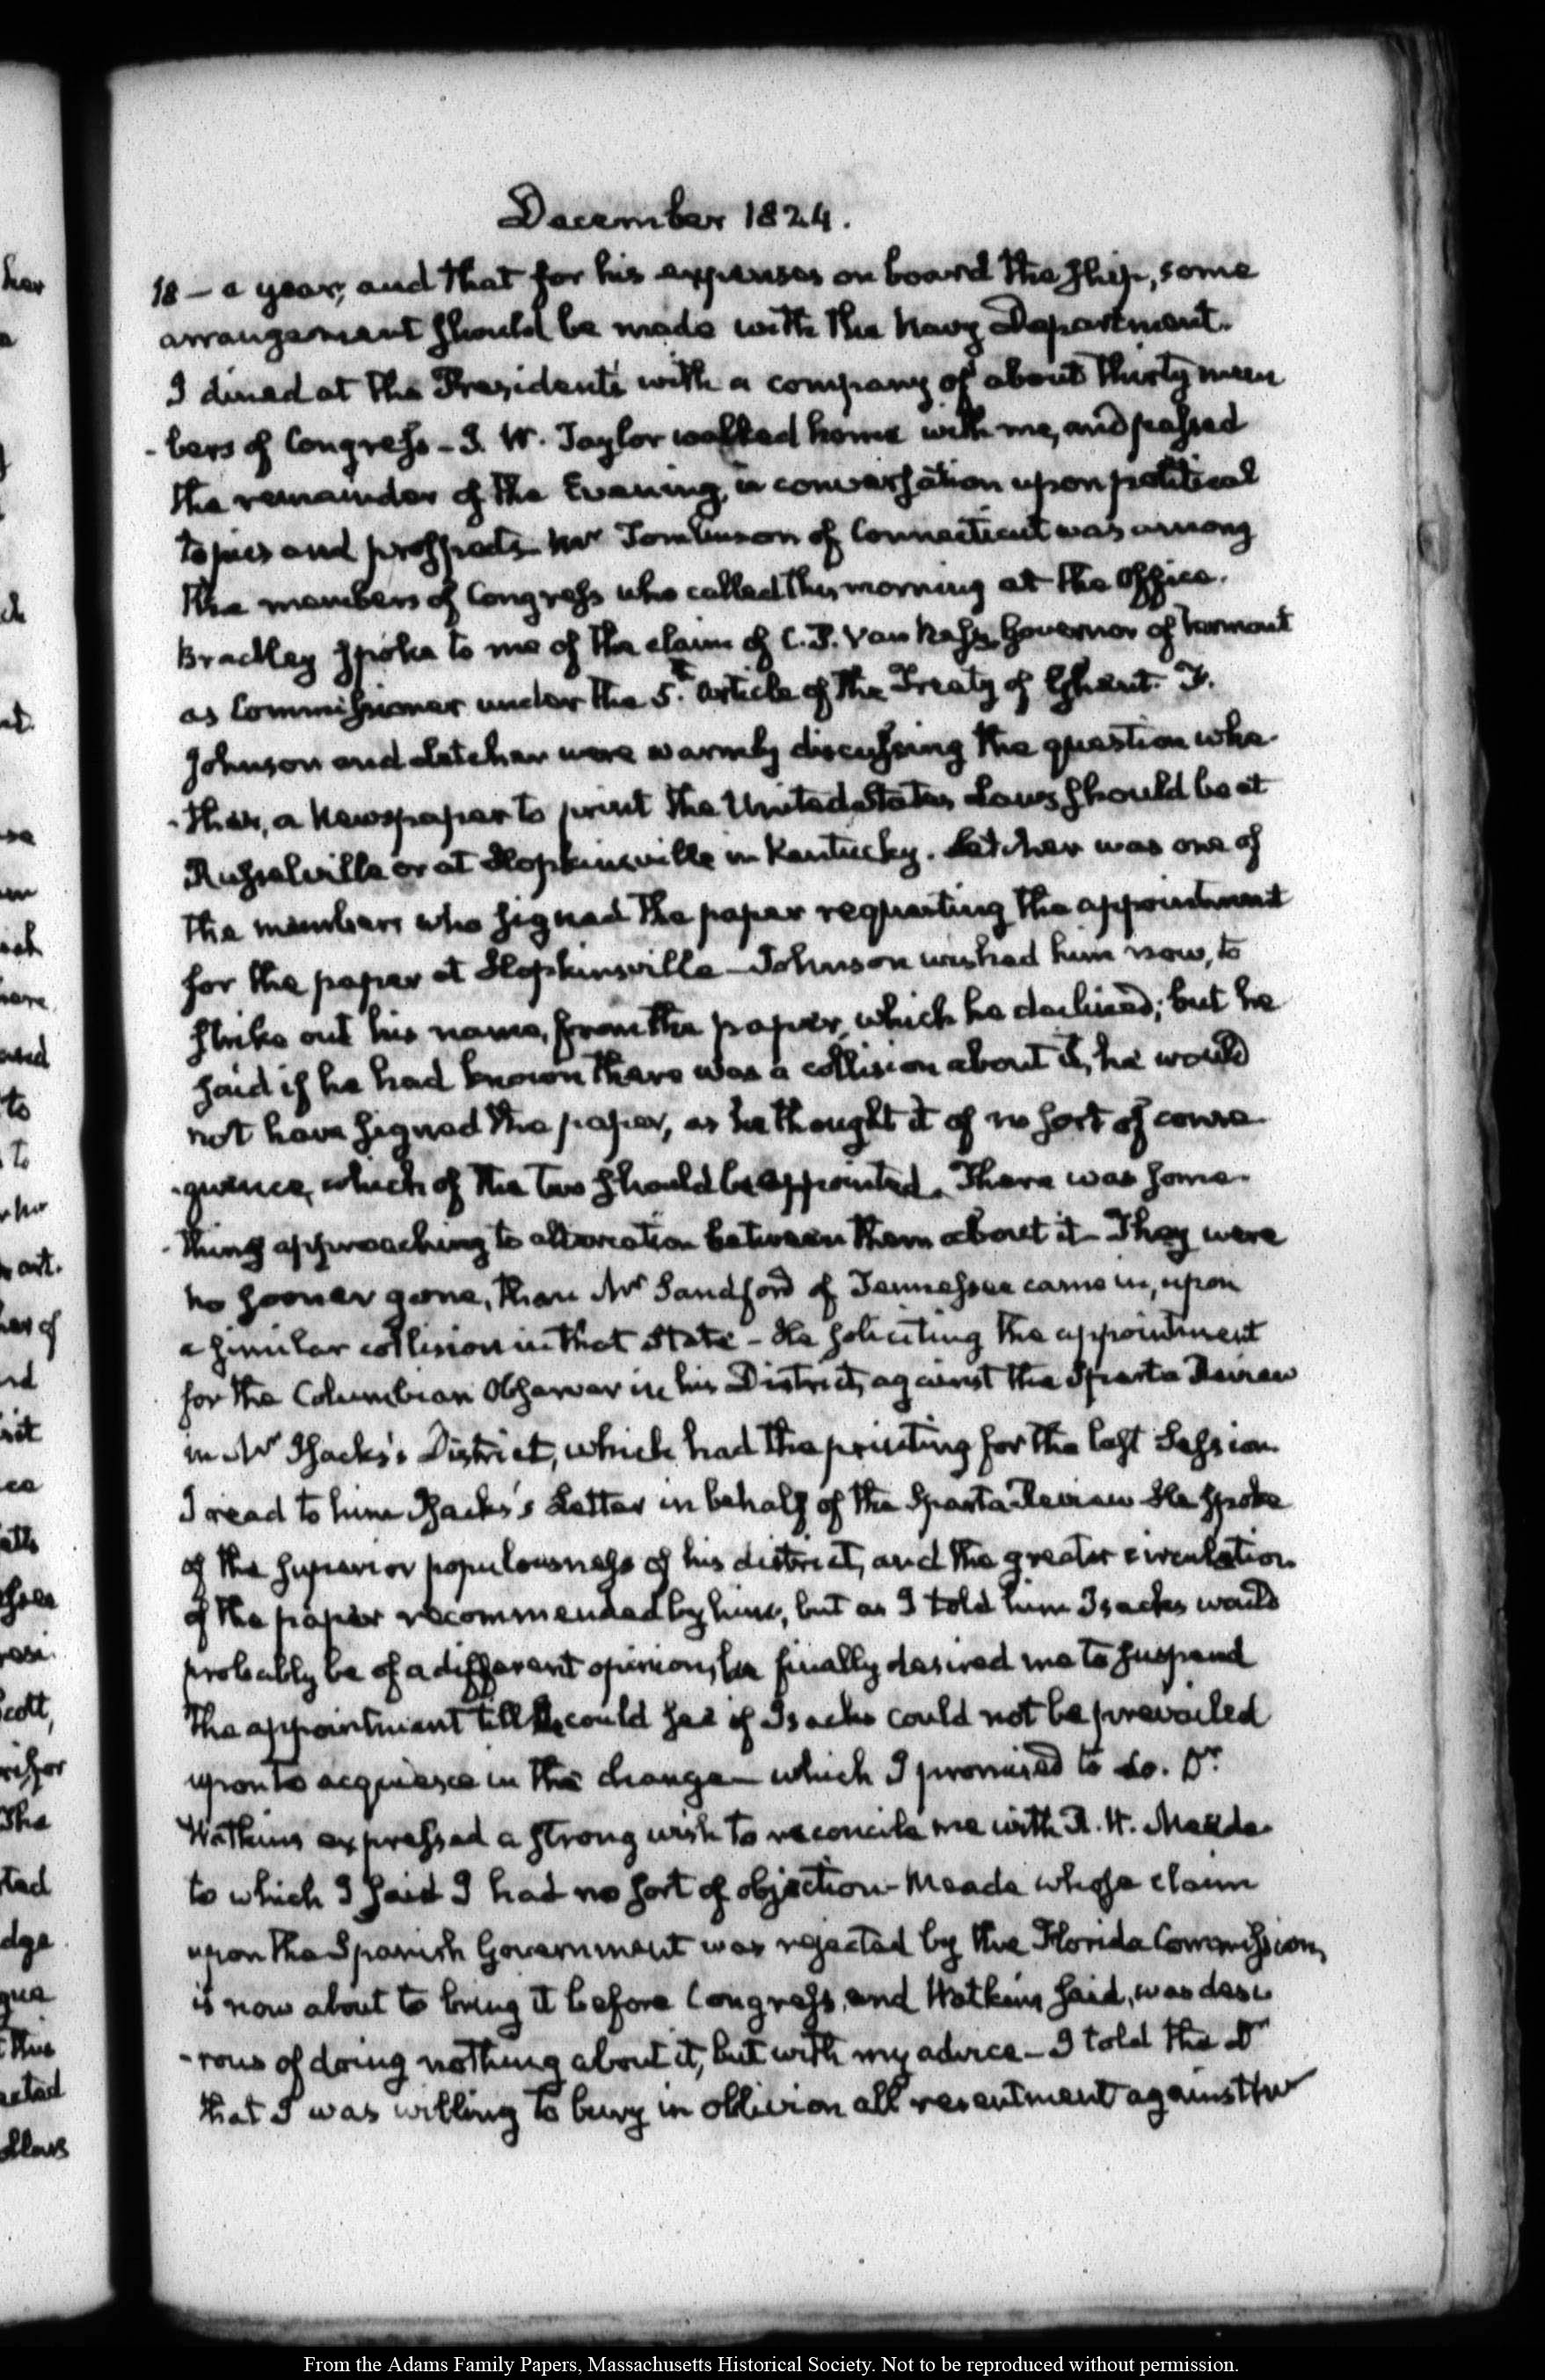 December 1824.
18 — a year, and that for his expenses on board the ship, some
arrangement should be made with the Navy Department.
I dined at the Presidents with a company of about thirty mem
-bers of Congress - J. W. Taylor walked home with me, and passed
the remainder of the Evening, in conversation upon political
topics and prospects. Mr Tomlinson of Connecticut was among
the members of Congress who called this morning at the Office.
Bradley spoke to me of the claim of C. P. Van Ness, Governor of Vermont
as Commissioner under the 5.t Article of the Treaty of Ghent. F.
Johnson and Letcher were warmly discussing the question whe-
-ther, a Newspaper to print the United States Laws should be at
Russelville or at Hopkinsville in Kentucky. Letcher was one of
the members who signed the paper requesting the appointment
for the paper at Hopkinsville - Johnson wished him now, to
strike out his name, from the paper, which he declined; but he
said if he had known there was a collision about it, he would
not have signed the paper, as he thought it of no sort of conse-
-quence, which of the two should be appointed. There was some-
-thing approaching to altercation between them about it - They were
no sooner gone, than Mr Sandford of Tennessee came in, upon
a similar collision in that State - He soliciting the appointment
for the Columbian Observer in his District, against the Sparta Review
in Mr Isacks's District, which had the printing for the last Session.
I read to him Isacks's Letter in behalf of the Sparta Review He spoke
of the superior populousness of his district, and the greater circulation
of the paper recommended by him, but as I told him Isacks would
probably be of a different opinion, he finally desired me to suspend
the appointment till he could see if Isacks could not be prevailed
upon to acquiesce in the change - which I promised to do. Dr
Watkins expressed a strong wish to reconcile me with R. W. Meade
to which I said I had no sort of objection - Meade whose claim
upon the Spanish Government was rejected by the Florida Commission,
is now about to bring it before Congress, and Watkins said, was desi
-rous of doing nothing about it, but with my advice - I told the Dr
that I was willing to bury in oblivion all resentment against
her
ath
and
to
to
art.
ca
Scott,
The
dge
this
From the Adams Family Papers, Massachusetts Historical Society. Not to be reproduced without permission.